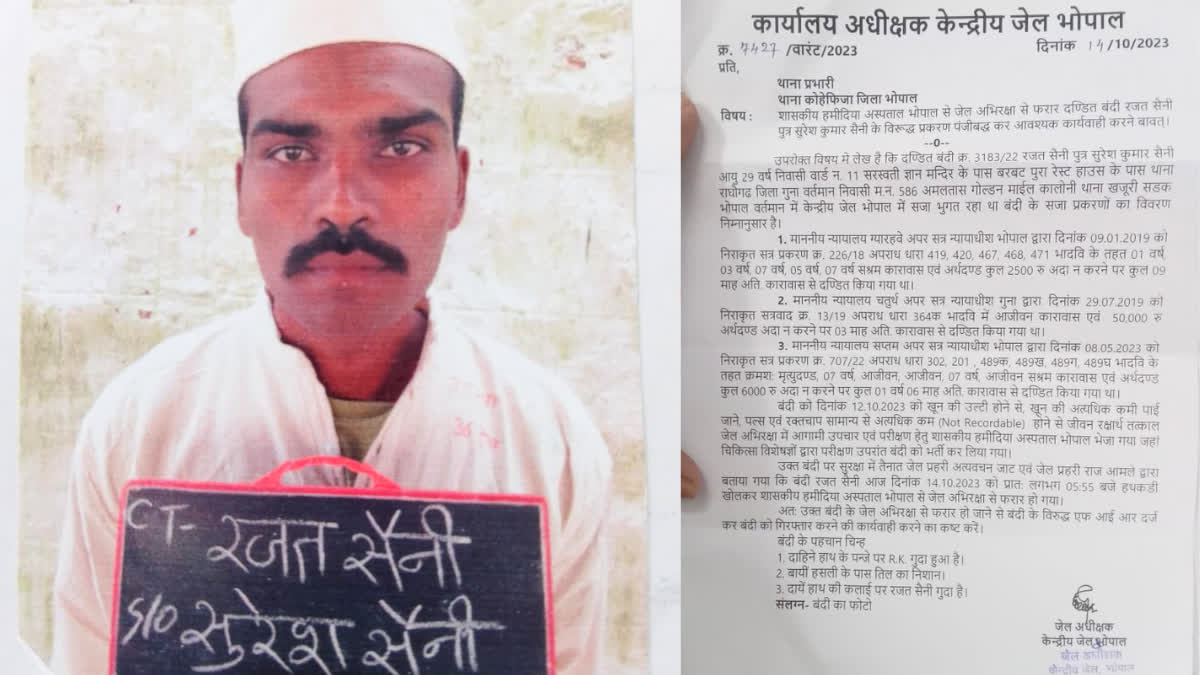 CT- रजत सैनी
S/O सुरेश सैनी
कार्यालय अधीक्षक केन्द्रीय जेल भोपाल
क्र. 7427 /वारंट/2023 दिनांक 14/10/2023
प्रति,
थाना प्रभारी
थाना कोहेफिजा जिला भोपाल
विषय : शासकीय हमीदिया अस्पताल भोपाल से जेल अभिरक्षा से फरार दण्डित बंदी रजत सैनी
पुत्र सुरेश कुमार सैनी के विरूद्ध प्रकरण पंजीबद्ध कर आवश्यक कार्यवाही करने बावत्।
--0--
उपरोक्त विषय में लेख है कि दण्डित बंदी क्र. 3183/22 रजत सैनी पुत्र सुरेश कुमार सैनी
आयु 29 वर्ष निवासी वार्ड न. 11 सरस्वती ज्ञान मन्दिर के पास बरबट पुरा रेस्ट हाउस के पास थाना
राघौगढ जिला गुना वर्तमान निवासी म.न. 586 अमलतास गोल्डन माईल कालोनी थाना खजूरी सडक
भोपाल वर्तमान में केन्द्रीय जेल भोपाल में सजा भुगत रहा था बंदी के सजा प्रकरणों का विवरण
निम्नानुसार है।
1. माननीय न्यायालय ग्यारहवे अपर सत्र न्यायाधीश भोपाल द्वारा दिनांक 09.01.2019 को
निराकृत सत्र प्रकरण क्र. 226/18 अपराध धारा 419, 420, 467, 468, 471 भादवि के तहत 01 वर्ष,
03 वर्ष, 07 वर्ष, 05 वर्ष, 07 वर्ष सश्रम कारावास एवं अर्थदण्ड कुल 2500 रु अदा न करने पर कुल 09
माह अति. कारावास से दण्डित किया गया था।
2. माननीय न्यायालय चतुर्थ अपर सत्र न्यायाधीश गुना द्वारा दिनांक 29.07.2019 को
निराकृत सत्रवाद क्र. 13/19 अपराध धारा 364क भादवि में आजीवन कारावास एवं 50,000 रु
अर्थदण्ड अदा न करने पर 03 माह अति. कारावास से दण्डित किया गया था।
3. माननीय न्यायालय सप्तम अपर सत्र न्यायाधीश भोपाल द्वारा दिनांक 08.05.2023 को
निराकृत सत्र प्रकरण क्र. 707/22 अपराध धारा 302, 201 , 489क, 489ख, 489ग, 489घ भादवि के
तहत क्रमशः मृत्युदण्ड, 07 वर्ष, आजीवन, आजीवन, 07 वर्ष, आजीवन सश्रम कारावास एवं अर्थदण्ड
कुल 6000 रु अदा न करने पर कुल 01 वर्ष 06 माह अति. कारावास से दण्डित किया गया था।
बंदी को दिनांक 12.10.2023 को खून की उल्टी होने से, खून की अत्यधिक कमी पाई
जाने, पल्स एवं रक्तचाप सामान्य से अत्यधिक कम (Not Recordable) होने से जीवन रक्षार्थ तत्काल
जेल अभिरक्षा में आगामी उपचार एवं परीक्षण हेतु शासकीय हमीदिया अस्पताल भोपाल भेजा गया जहां
चिकित्सा विशेषज्ञों द्वारा परीक्षण उपरांत बंदी को भर्ती कर लिया गया।
उक्त बंदी पर सुरक्षा में तैनात जेल प्रहरी अत्यवचन जाट एवं जेल प्रहरी राज आमले द्वारा
बताया गया कि बंदी रजत सैनी आज दिनांक 14.10.2023 को प्रातः लगभग 05:55 बजे हथकडी
खोलकर शासकीय हमीदिया अस्पताल भोपाल से जेल अभिरक्षा से फरार हो गया।
अतः उक्त बंदी के जेल अभिरक्षा से फरार हो जाने से बंदी के विरुद्ध एफ आई आर दर्ज
कर बंदी को गिरफ्तार करने की कार्यवाही करने का कष्ट करें।
बंदी के पहचान चिन्ह
1. दाहिने हाथ के पन्जे पर R.K. गुदा हुआ है।
2. बायीं हसली के पास तिल का निशान।
3. दायें हाथ की कलाई पर रजत सैनी गुदा है।
संलग्न- बंदी का फोटो
जेल अधीक्षक
केन्द्रीय जेल भोपाल
जेल अधीक्षक
केन्द्रीय जेल, भोपाल